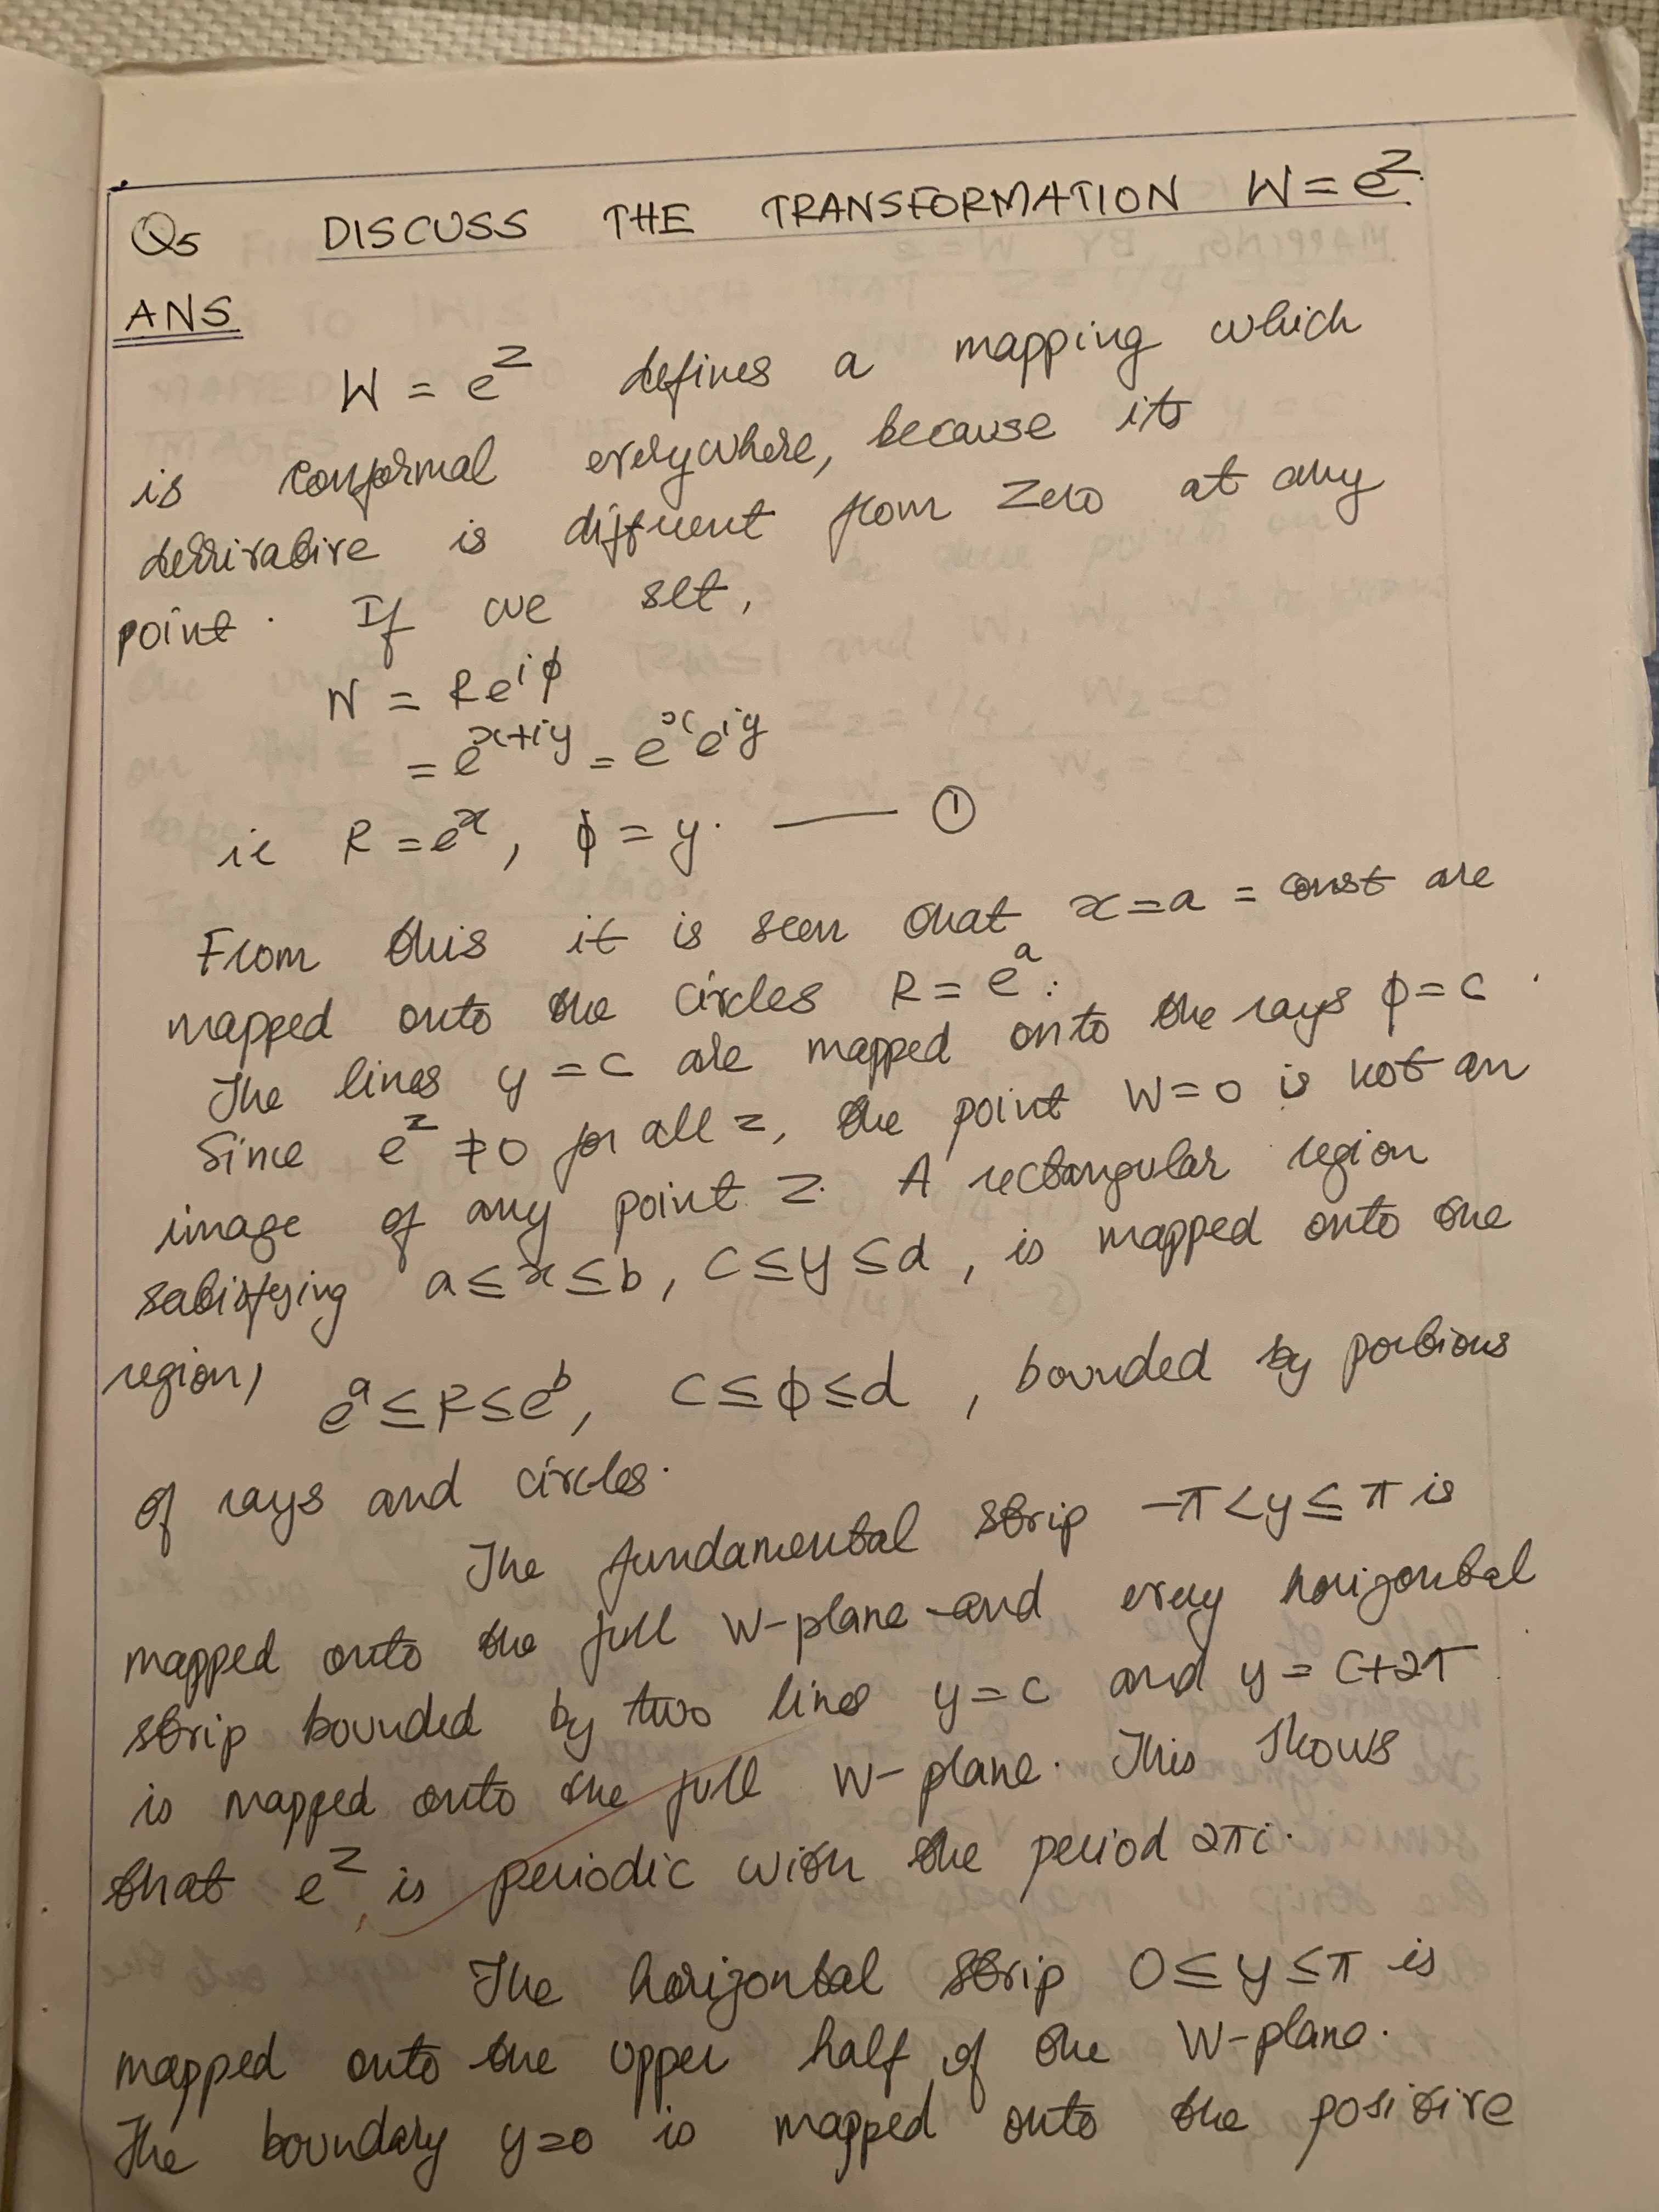 Q5 DISCUSS THE TRANSFORMATION W = e^z.
ANS
W = e^z defines a mapping which
is conformal everywhere, because its
derrivative is different from zero at any
point. If we set,
W = Re^iϕ
= e^x+iy = e^x e^iy
ie R = e^x, ϕ = y. —— ①
From this it is seen that x = a = const are
mapped onto the circles R = e^a.
The lines y = c are mapped onto the rays ϕ = c.
Since e^z ≠ 0 for all z, the point W = 0 is not an
image of any point z. A rectangular region
satisfying a ≤ x ≤ b, c ≤ y ≤ d, is mapped onto the
region, e^a ≤ R ≤ e^b, c ≤ ϕ ≤ d, bounded by portions
of rays and circles.
The fundamental strip -π < y ≤ π is
mapped onto the full W-plane and every horizontal
strip bounded by two lines y = c and y = c+2π
is mapped onto the full W-plane. This shows
that e^z is periodic with the period 2πi.
The horizontal strip 0 ≤ y ≤ π is
mapped onto the upper half of the W-plane.
The boundary y=0 is mapped onto the positive